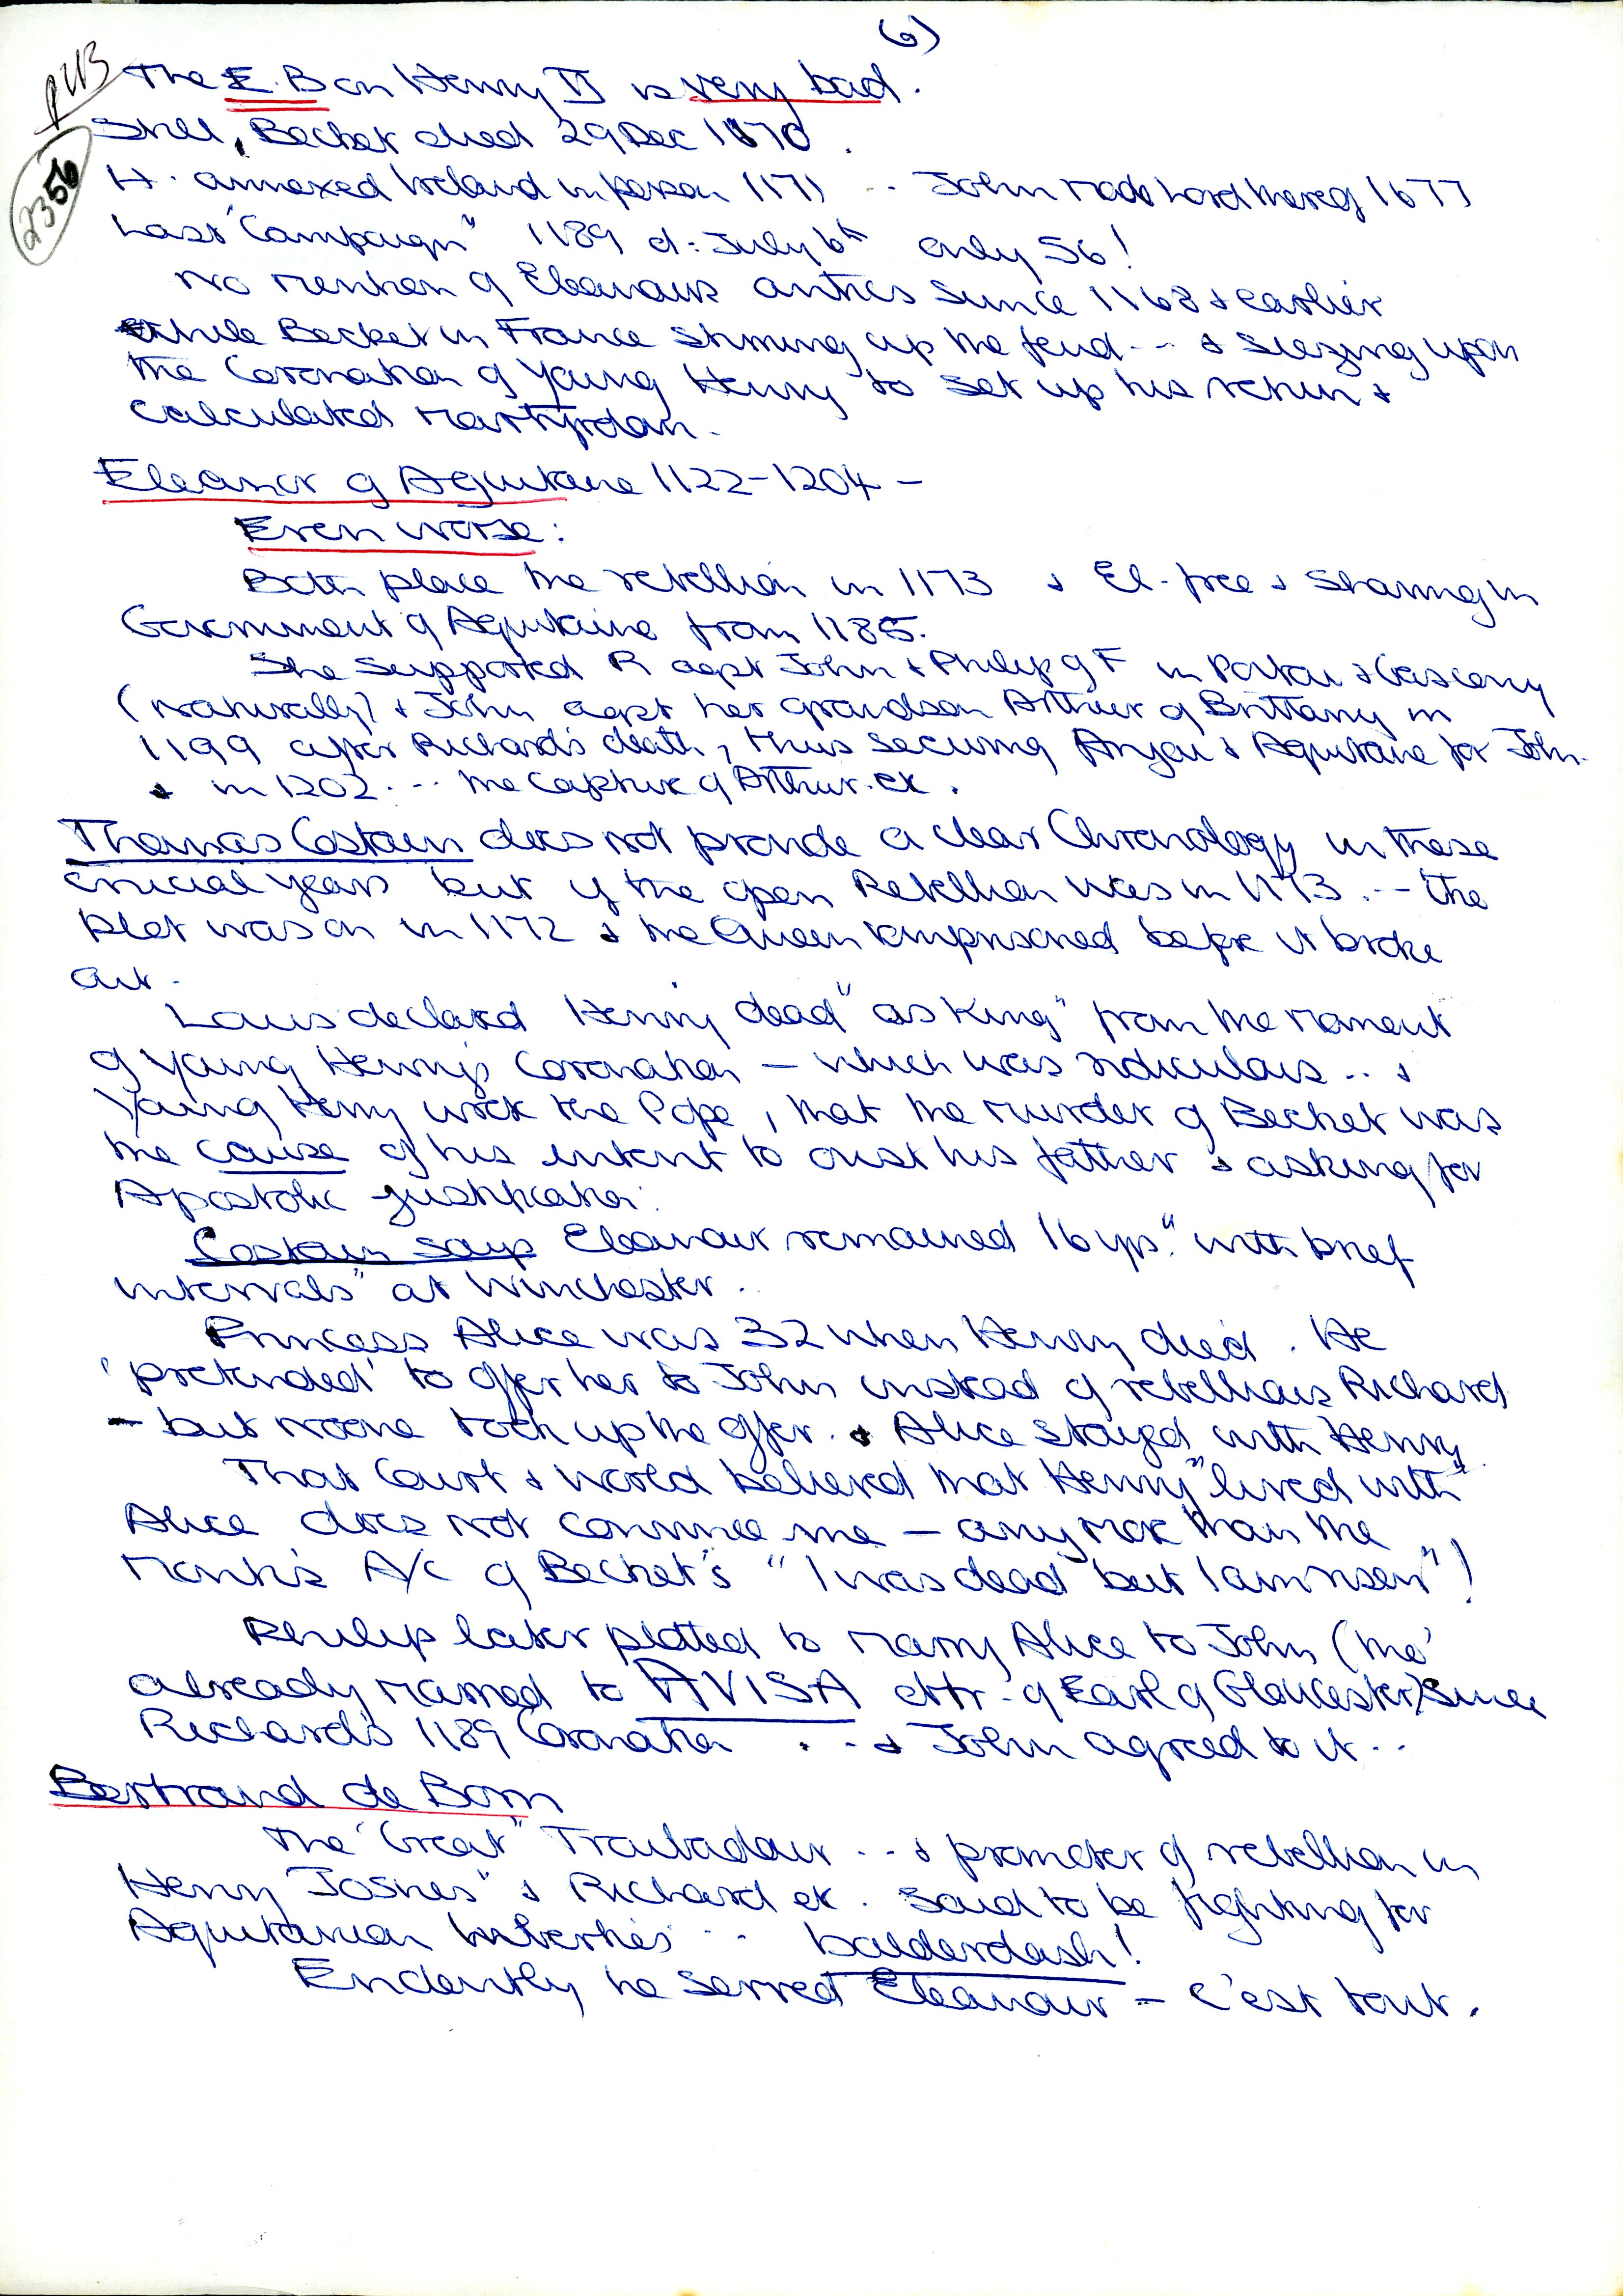 6)
PUB
2356
The E.B on Henry II is very bad.
Still, Becket died 29 Dec 1170.
H. annexed Ireland in person 1171 ... John made Lord thereof 1677
Last "Campaign" 1189 d: July 6th only 56!
No mention of Eleanour's antics since 1168 & earlier
while Becket in France stirring up the feud ... & seizing upon
the Coronation of Young Henry to set up his return &
calculated martyrdom.
Eleanor of Aquitane 1122-1204 -
Even worse:
Both place the rebellion in 1173 & El. free & sharing in
Government of Aquitaine from 1185.
She supported R agst John & Philip of F in Poitou & Gascony
(naturally) & John agst her grandson Arthur of Brittany in
1199 after Richard's death, thus securing Anjou & Aquitane for John.
& in 1202 ... the capture of Arthur. etc.
Thomas Costain does not provide a clear Chronology in these
crucial years but if the open Rebellion was in 1173 ... the
plot was on in 1172 & the Queen imprisoned before it broke
out.
Louis declared Henry dead "as King" from the moment
of Young Henry's Coronation - which was ridiculous .. &
Young Henry wrote the Pope, that the murder of Becket was
the cause of his intent to oust his father & asking for
Apostolic justification.
Costain says Eleanour remained 16 yrs. "with brief
intervals" at Winchester.
Princess Alice was 32 when Henry died. He
'pretended' to offer her to John instead of rebellious Richard
- but noone took up the offer. & Alice stayed with Henry.
That Court & World believed that Henry "lived with"
Alice does not convince me - any more than the
Monk's A/c of Becket's "I was dead but I am risen"!
Philip later plotted to marry Alice to John (tho'
already married to AVISA dtr. of Earl of Gloucester) since
Richard's 1189 Coronation ... & John agreed to it ..
Bertrand de Born
The "Great" Troubadour ... & promoter of rebellion in
Henry "Josnes" & Richard etc. Said to be fighting for
Aquitanian liberties ... balderdash!
Evidently he served Eleanour - c'est tout.